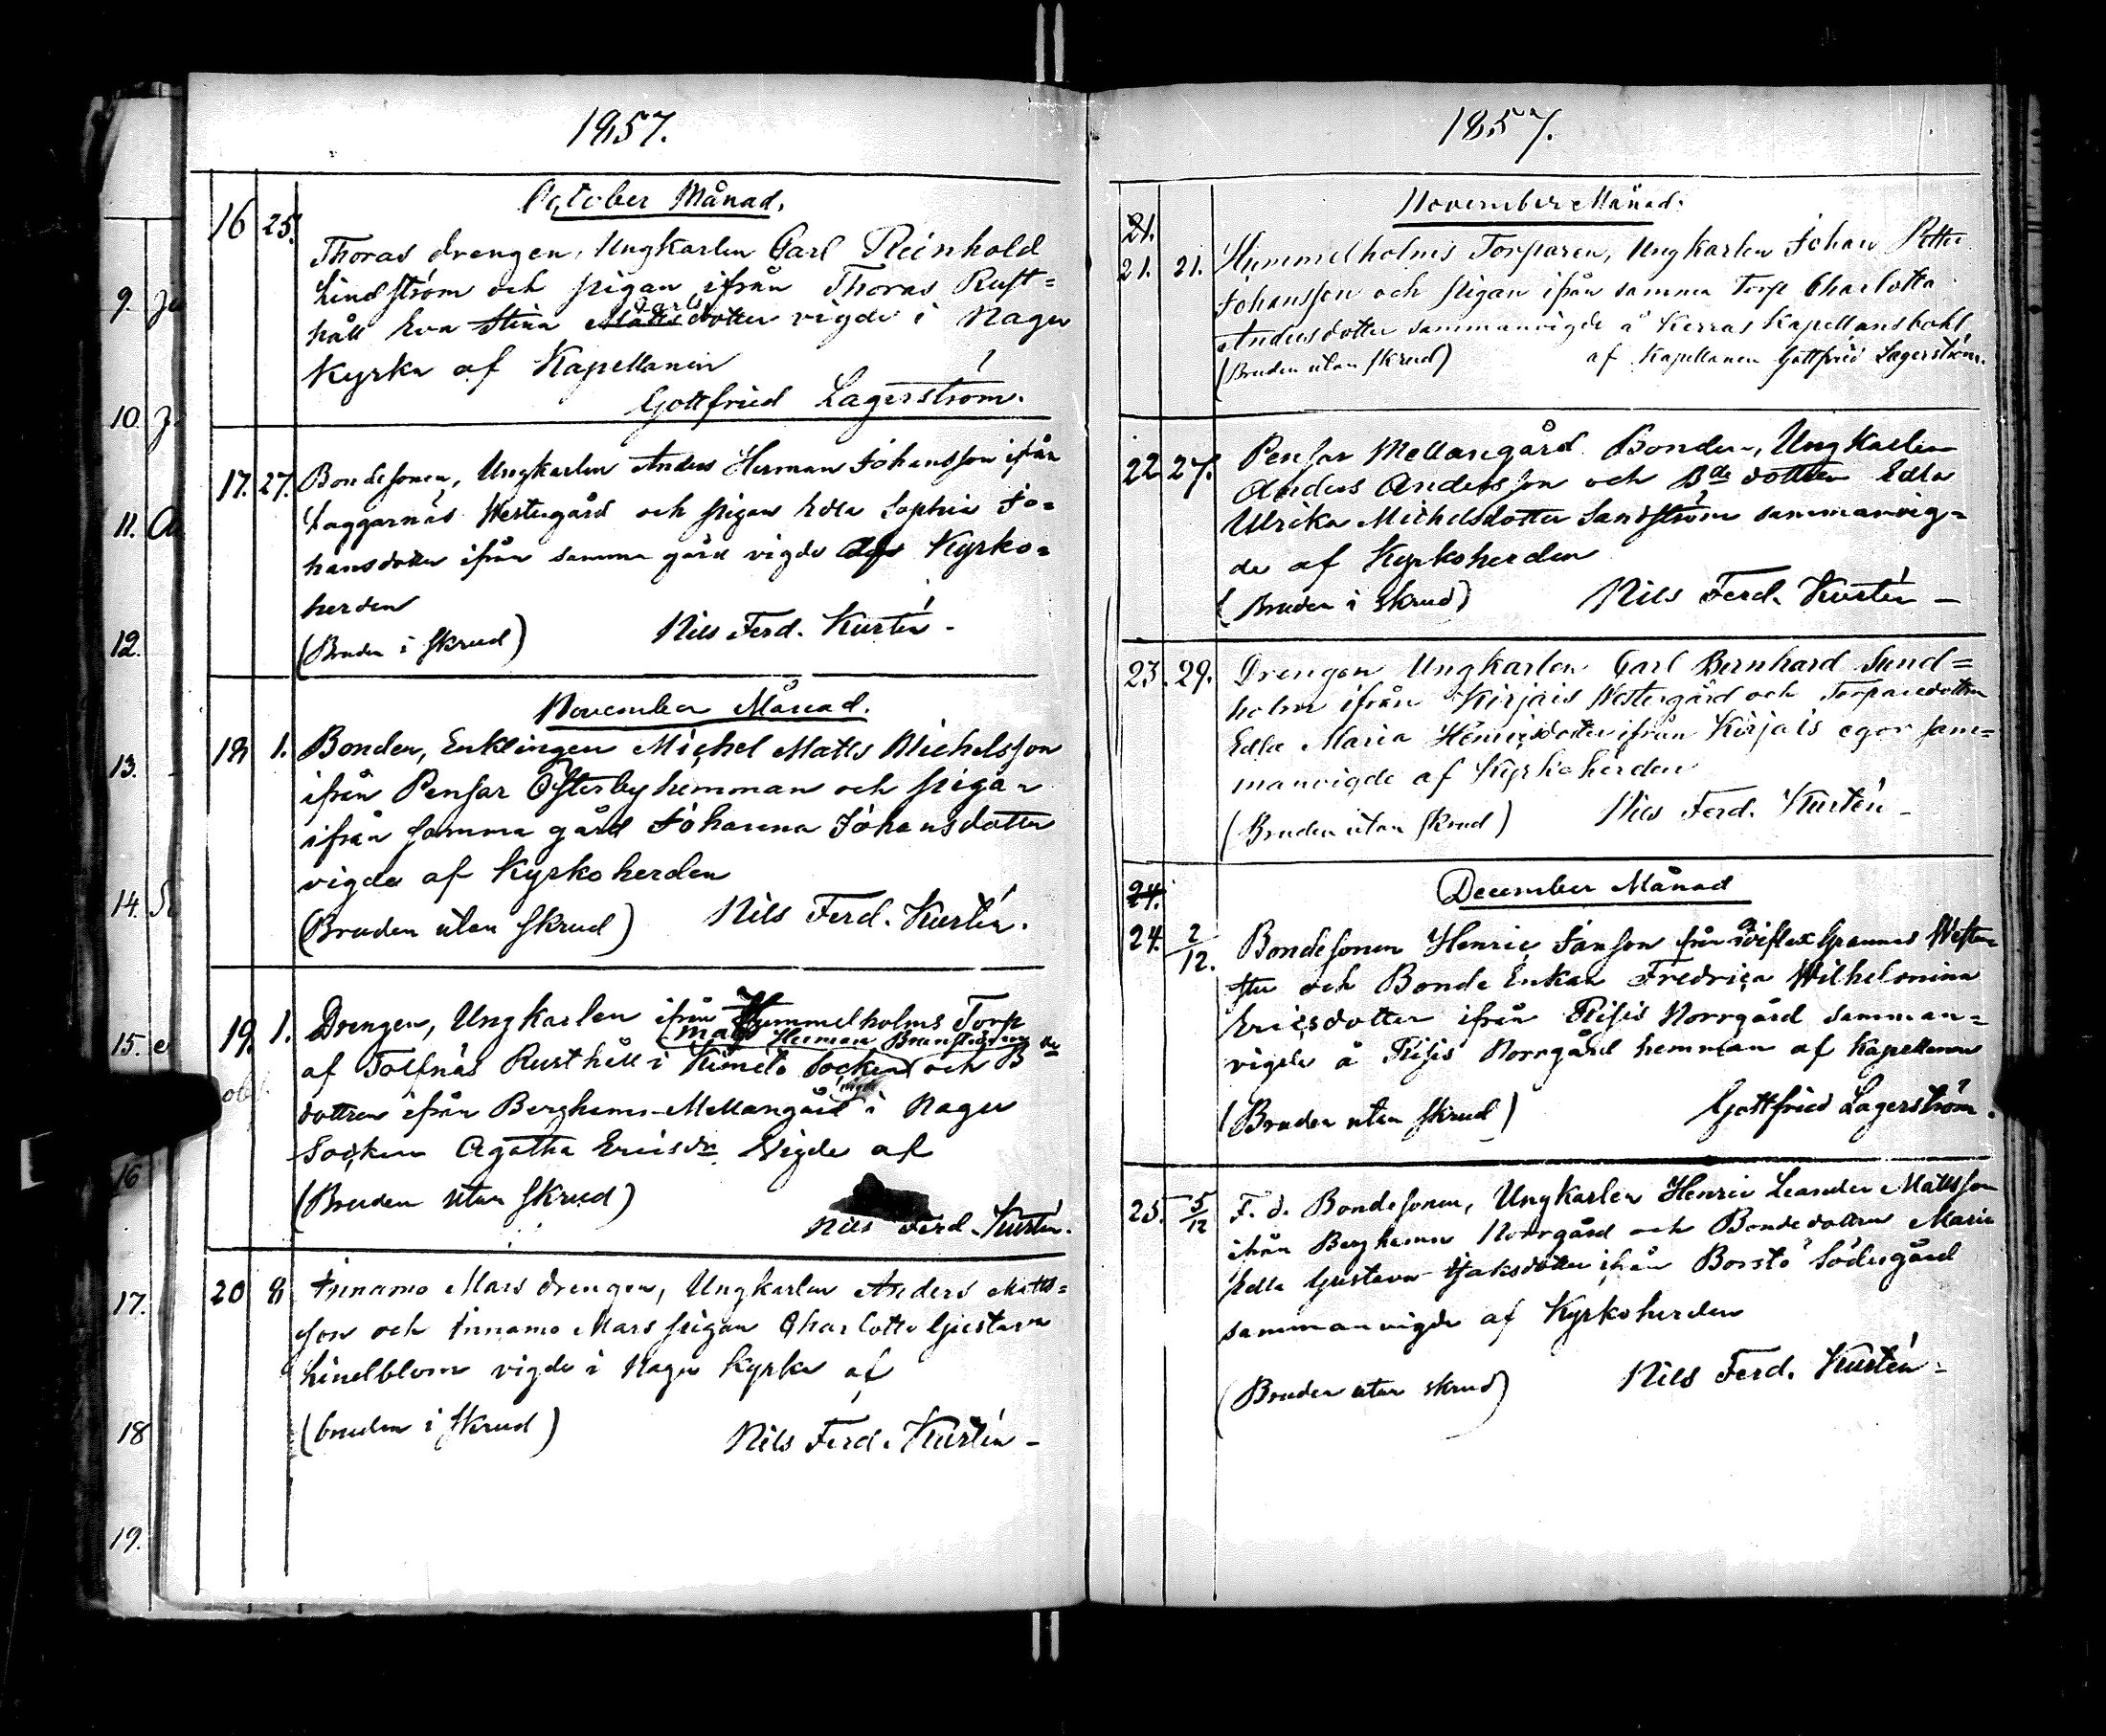 1857.
October Månad.
16 25. Thoras drengen, Ungkarlen Carl Reinhold
Lindström och pigan ifrån Thoras Rust=
håll Eva Stina Carlsdotter vigde i Nagu
Kyrka af Kapellanen
Gottfried Lagerström.
17. 27. Bondesonen, Ungkarlen Anders Herman Johansson ifrån
Laggarnäs Westergård och pigan Edla Sophia Jo=
hansdotter ifrån samma gård vigde af Kyrko=
herden
(Bruden i skrud) Nils Ferd. Kurtén -
November Månad.
18 1. Bonden, Enklingen Michel Matts Michelsson
ifrån Pensar Österby hemman och pigan
ifrån samma gård Johanna Johansdotter
vigde af Kyrkoherden
(Bruden utan skrud) Nils Ferd. Kurtén.
19. 1. Drengen, Ungkarlen ifrån Hummelholms Torp
Mats Herman
af Tolfnäs Rusthåll i Kimito Socken och B de
dottren ifrån Berghems Mellangård i Nagu
Socken Agatha Ericsdr. Vigde af
(Bruden utan skrud)
Nils Ferd. Kurtén.
20 8 Innamo Mars drengen, Ungkarlen Anders Matts=
son och Innamo Mars pigan Charlotta Gustava
Lindblom vigde i Nagu Kyrka af
(bruden i skrud) Nils Ferd. Kurtén -
9.
10.
11.
12.
13.
14.
15.
16
17.
18
19.
1857.
November Månad.
21.
21. 21. Hummelholms Torparen, Ungkarlen Johan Petter
Johansson och pigan ifrån samma Torp Charlotta
Andersdotter sammanvigde å Kerras Kapellansbohl
(Bruden utan skrud) af Kapellanen Gottfried Lagerström.
22 27. Pensar Mellangård Bonden, Ungkarlen
Anders Andersson och Bde dottren Edla
Ulrika Michelsdotter Sandström sammanvig=
de af Kyrkoherden
(Bruden i skrud) Nils Ferd. Kurtén -
23. 29. Drengen Ungkarlen Carl Bernhard Sund=
holm ifrån Kirjais Westergård och Torparedottren
Edla Maria Henricsdotter ifrån Kirjais egor sam=
manvigde af Kyrkoherden
(Bruden utan skrud) Nils Ferd. Kurtén -
24. December Månad
24. 2/12. Bondesonen Henric Janson från Grannas
och Bonde Enkan Fredrica Wilhelmina
Ericsdotter ifrån Risis Norrgård samman=
vigde å Risis Norrgård hemman af Kapellanen
(Bruden utan skrud) Gottfried Lagerström.
25. 5/12 F. d. Bondesonen, Ungkarlen Henric Leander Mattsson
ifrån Berghamn Norrgård och Bondedottren Maria
Edla Gustava Isaksdotter ifrån Borstö Södergård
sammanvigde af Kyrkoherden
(Bruden utan skrud) Nils Ferd. Kurtén -